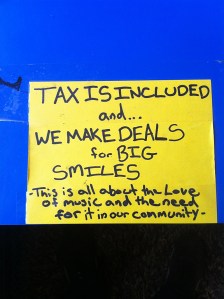 TAX IS INCLUDED
and...
WE MAKE DEALS
for BIG
SMILES
-This is all about the Love
of music and the need
for it in our community-